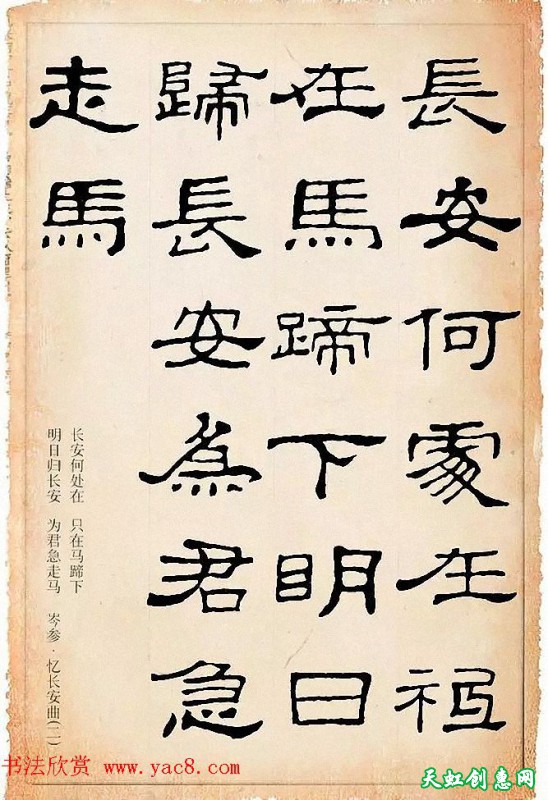 長安何處在祗
在馬蹄下明日
歸長安為君急
走馬
长安何处在 只在马蹄下
明日归长安 为君急走马 岑参·忆长安曲(二)
书法欣赏 www.yac8.com
天虹创惠网